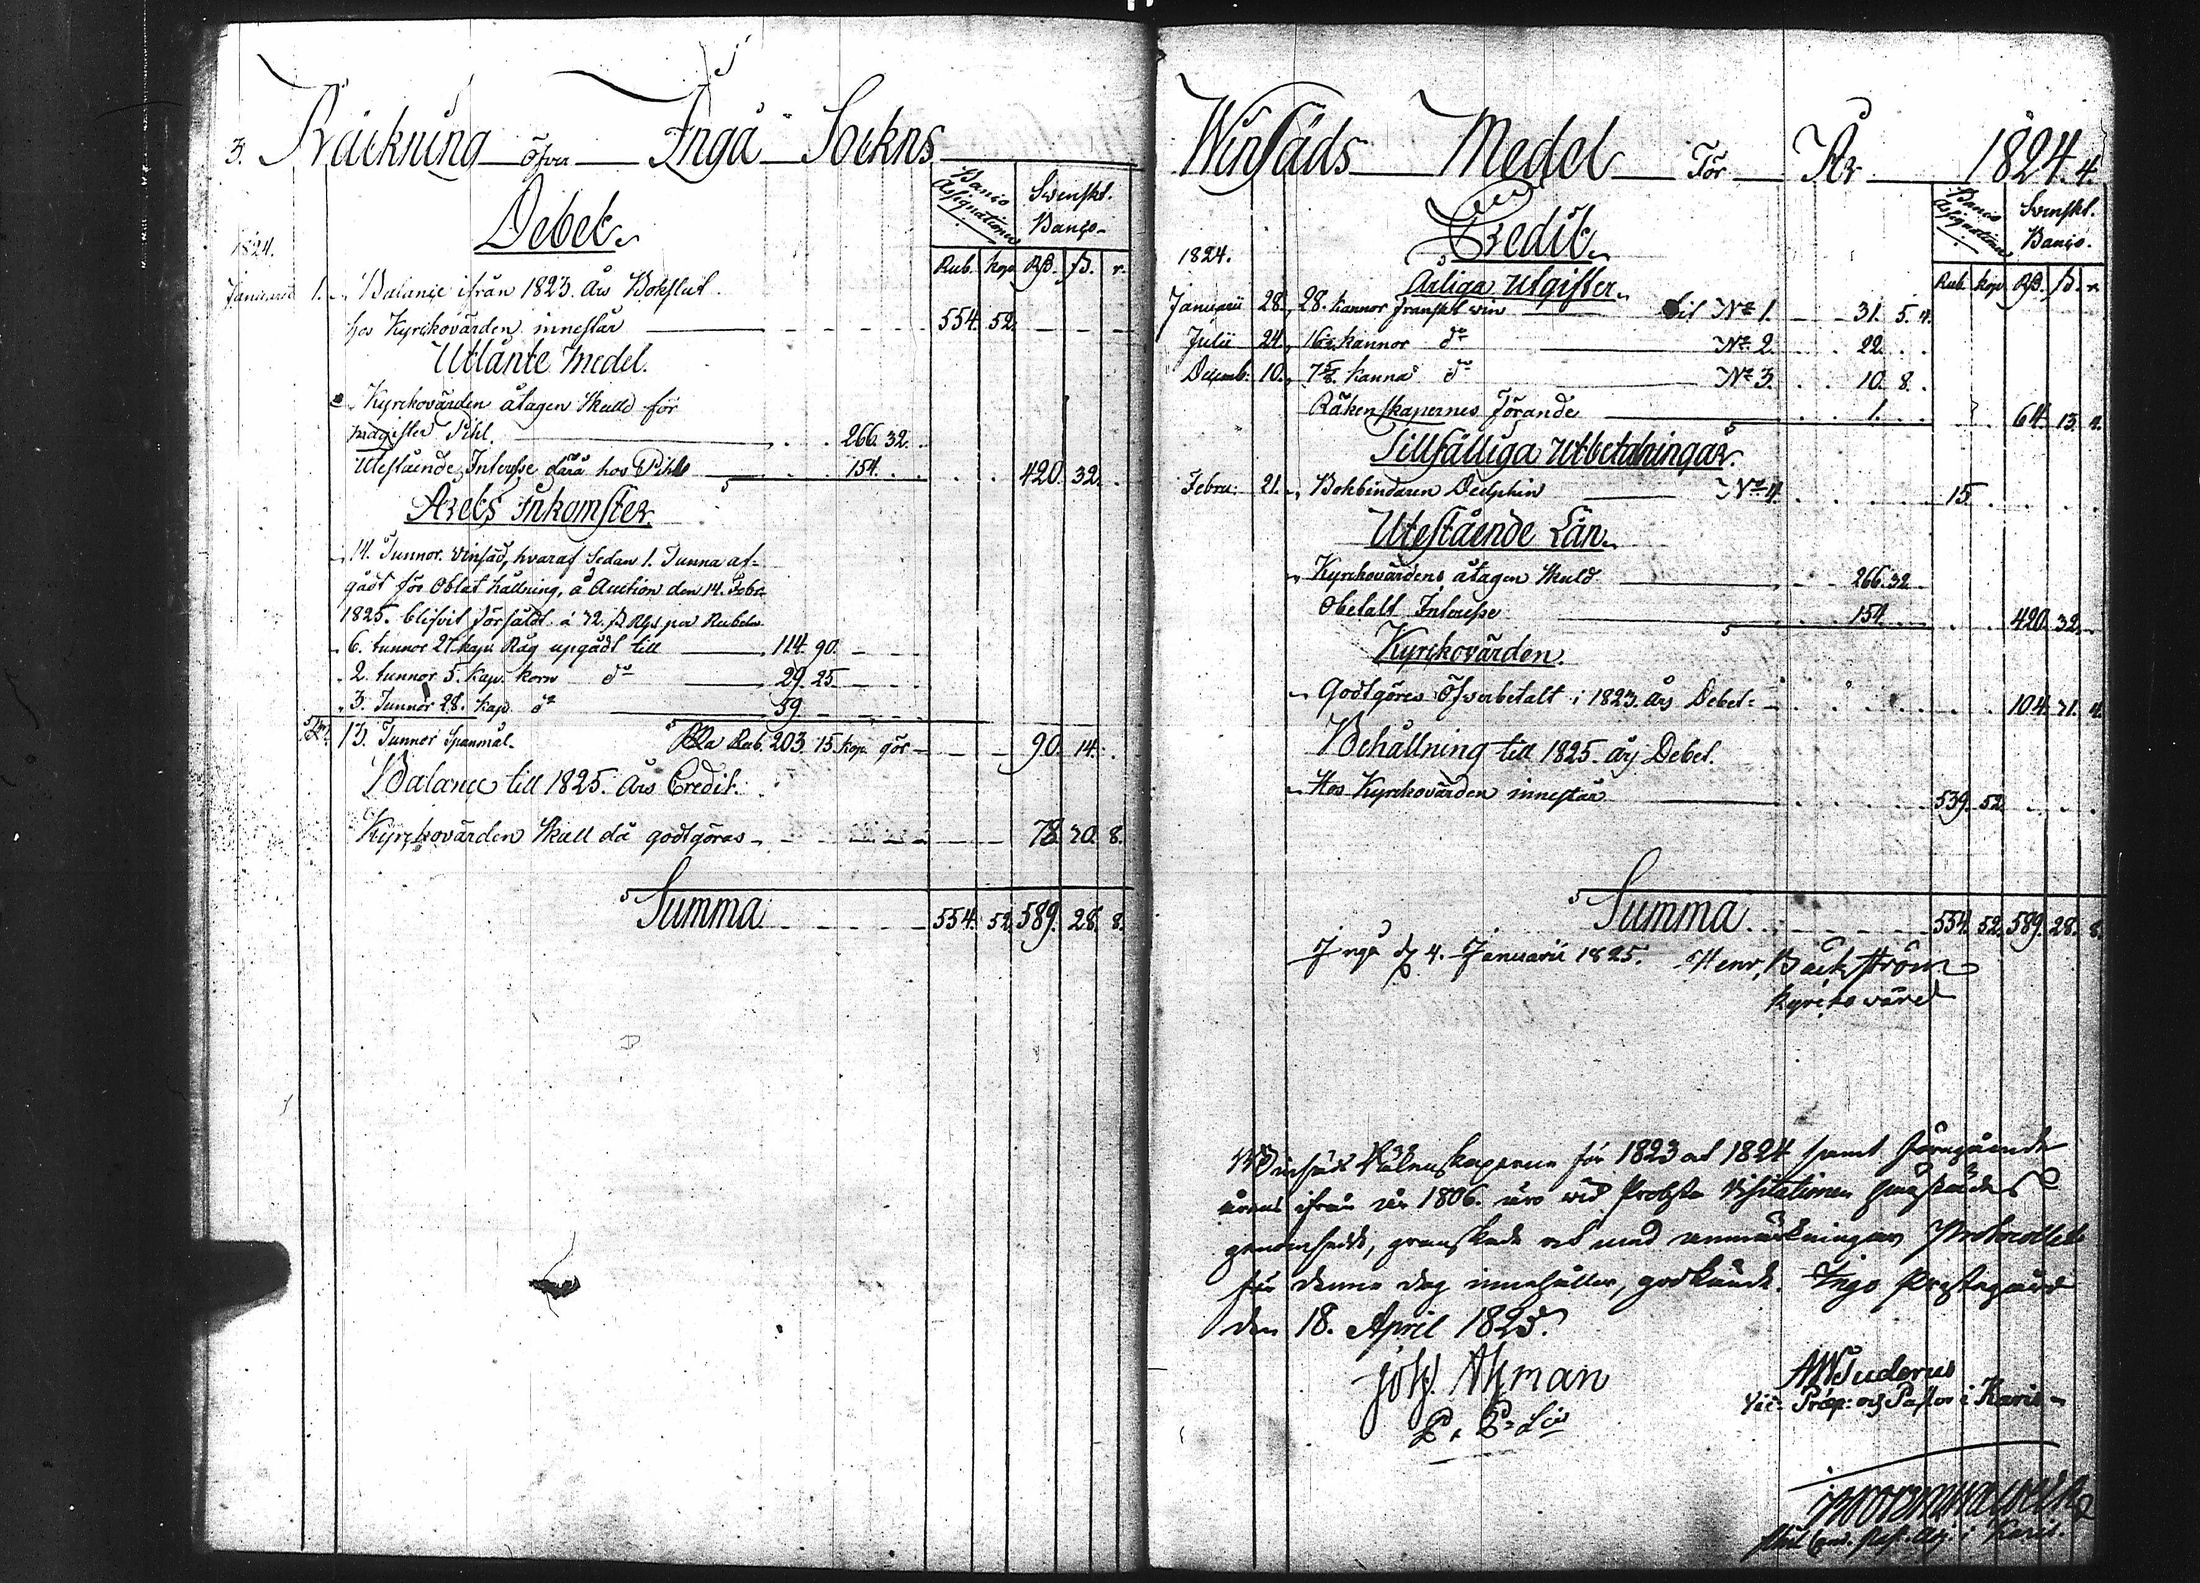 3. Räckning öfver Ingå Sockns
Debet.
Banco Assignationer
Svenskt. Banço.
Rub. kop. Rß. ß. r.
1824.
Januarii 1. Balance ifrån 1823. Års Bokslut
hos Kyrckovärden innestår 554. 52.
Utlånte Medel.
Kyrckovärden åtagen Skuld för
Magister Pihl. 266. 32.
Utestående Interesse därå hos Pihl 154. 420. 32.
Årets Inkomster.
14. Tunnor Vinsäd, hvaraf Sedan 1. Tunna af-
gådt för Oblat hållning, å Auction den 14. Febr.
1825. blifvit försåldt à 72. ß Rgs per Rubel
6. tunnor 27. kap. Råg upgådt till 114. 90.
2. tunnor 5. Kap. korn do 29. 25.
3. Tunnor 28. kap. do 59
13. Tunnor Spanmål. Rub. 203. 15. kop. gör 90. 14.
Balance till 1825. Års Credit.
Kyrckovärden Skall då godtgöras 78. 20. 8.
Summa 554. 52. 589. 28. 8.
WinSäds Medel För År 1824. 4.
Credit.
Banco Assignationer
Svenskt. Banço.
Rub. kop. Rß. ß. r.
1824.
Årliga Utgifter.
Januarii 28. 28. kannor franskt vin till No 1. 31. 5. 4.
Julii 24. 16½ kannor do No 2. 22.
Decemb: 10. 7⅝. kannor do No 3. 10. 8.
Räkenskapernes Förande 1. 64. 13. 4.
Tillfälliga Utbetalningar.
Febru: 21. Bokbindaren Delphin No 4. 15.
Utestående Lån.
Kyrckovärdens åtagen Skuld 266. 32
Obetalt Interesse 154. 420. 32.
Kyrckovärden.
Godtgöres Öfverbetalt i 1823. års Debet: 104. 31. 4.
Behållning till 1825. års Debet.
Hos Kyrckovärden innestår 539. 52.
Summa 554. 52. 589. 28. 8.
Ingå d. 4. Januarii 1825. Henr, Bäckström
Kyrckovärd
Winsäds Räkenskaperne för 1823 och 1824 samt föregående
årens ifrån år 1806. äro vid Probste Visitationen
genomsedde, granskade och med anmärkningar Protocollet
för denne dag innehåller, godkände. Ingo Prestegård
den 18. April 1825.
Joh. Ahman
AW Tuderus
Vic: Præp: och Pastor i Karis